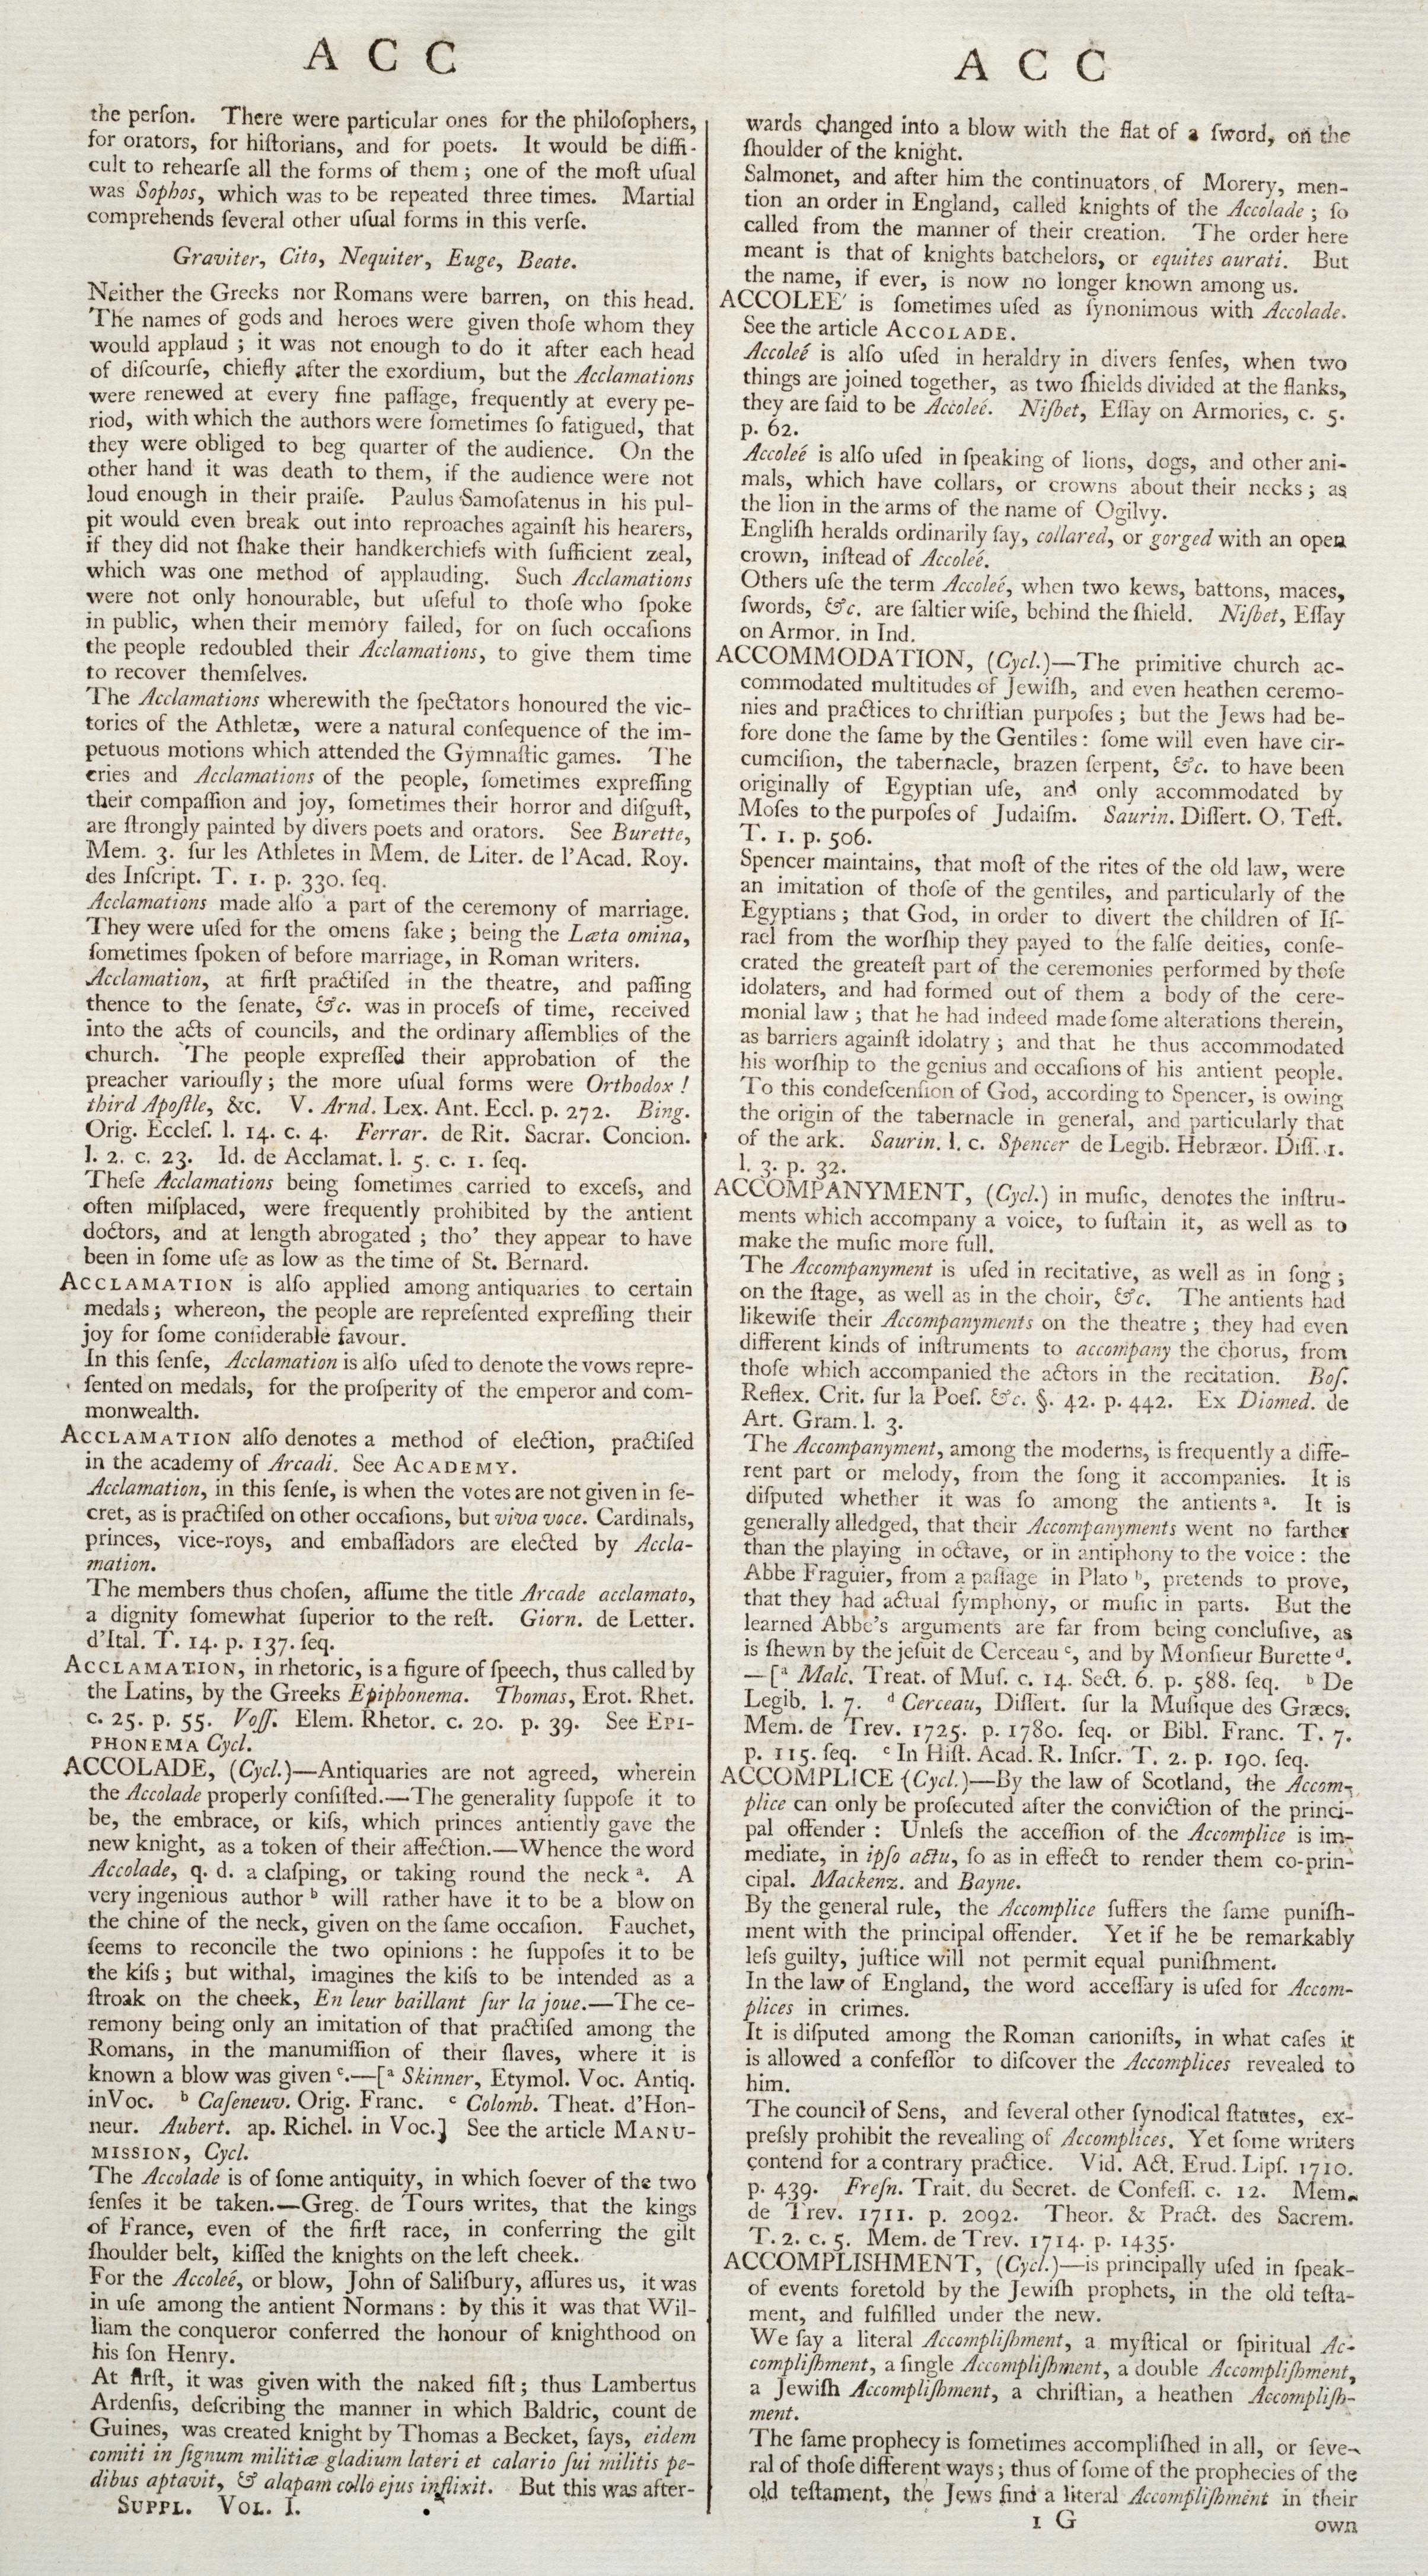 A C C
the perſon. There were particular ones for the philoſophers,
for orators, for hiſtorians, and for poets. It would be diffi-
cult to rehearſe all the forms of them; one of the moſt uſual
was Sophos, which was to be repeated three times. Martial
comprehends ſeveral other uſual forms in this verſe.
Graviter, Cito, Nequiter, Euge, Beate.
Neither the Greeks nor Romans were barren, on this head.
The names of gods and heroes were given thoſe whom they
would applaud; it was not enough to do it after each head
of diſcourſe, chiefly after the exordium, but the Acclamations
were renewed at every fine paſſage, frequently at every pe-
riod, with which the authors were ſometimes ſo fatigued, that
they were obliged to beg quarter of the audience. On the
other hand it was death to them, if the audience were not
loud enough in their praiſe. Paulus Samoſatenus in his pul-
pit would even break out into reproaches againſt his hearers,
if they did not ſhake their handkerchiefs with ſufficient zeal,
which was one method of applauding. Such Acclamations
were not only honourable, but uſeful to thoſe who ſpoke
in public, when their memory failed, for on ſuch occaſions
the people redoubled their Acclamations, to give them time
to recover themſelves.
The Acclamations wherewith the ſpectators honoured the vic-
tories of the Athletæ, were a natural conſequence of the im-
petuous motions which attended the Gymnaſtic games. The
cries and Acclamations of the people, ſometimes expreſſing
their compaſſion and joy, ſometimes their horror and diſguſt,
are ſtrongly painted by divers poets and orators. See Burette,
Mem. 3. ſur les Athletes in Mem. de Liter. de l'Acad. Roy.
des Inſcript. T. 1. p. 330. ſeq.
Acclamations made alſo a part of the ceremony of marriage.
They were uſed for the omens ſake; being the Læta omina,
ſometimes ſpoken of before marriage, in Roman writers.
Acclamation, at firſt practiſed in the theatre, and paſſing
thence to the ſenate, &c. was in proceſs of time, received
into the acts of councils, and the ordinary aſſemblies of the
church. The people expreſſed their approbation of the
preacher variouſly; the more uſual forms were Orthodox!
third Apoſtle, &c. V. Arnd. Lex. Ant. Eccl. p. 272. Bing.
Orig. Eccleſ. l. 14. c. 4. Ferrar. de Rit. Sacrar. Concion.
l. 2. c. 23. Id. de Acclamat. l. 5. c. 1. ſeq.
Theſe Acclamations being ſometimes carried to exceſs, and
often miſplaced, were frequently prohibited by the antient
doctors, and at length abrogated; tho' they appear to have
been in ſome uſe as low as the time of St. Bernard.
ACCLAMATION is alſo applied among antiquaries to certain
medals; whereon, the people are repreſented expreſſing their
joy for ſome conſiderable favour.
In this ſenſe, Acclamation is alſo uſed to denote the vows repre-
ſented on medals, for the proſperity of the emperor and com-
monwealth.
ACCLAMATION alſo denotes a method of election, practiſed
in the academy of Arcadi. See ACADEMY.
Acclamation, in this ſenſe, is when the votes are not given in ſe-
cret, as is practiſed on other occaſions, but viva voce. Cardinals,
princes, vice-roys, and embaſſadors are elected by Accla-
mation.
The members thus choſen, aſſume the title Arcade acclamato,
a dignity ſomewhat ſuperior to the reſt. Giorn. de Letter.
d'Ital. T. 14. p. 137. ſeq.
ACCLAMATION, in rhetoric, is a figure of ſpeech, thus called by
the Latins, by the Greeks Epiphonema. Thomas, Erot. Rhet.
c. 25. p. 55. Voſſ. Elem. Rhetor. c. 20. p. 39. See EPI-
PHONEMA Cycl.
ACCOLADE, (Cycl.)—Antiquaries are not agreed, wherein
the Accolade properly conſiſted.—The generality ſuppoſe it to
be, the embrace, or kiſs, which princes antiently gave the
new knight, as a token of their affection.—Whence the word
Accolade, q. d. a claſping, or taking round the neck ᵃ. A
very ingenious author ᵇ will rather have it to be a blow on
the chine of the neck, given on the ſame occaſion. Fauchet,
ſeems to reconcile the two opinions: he ſuppoſes it to be
the kiſs; but withal, imagines the kiſs to be intended as a
ſtroak on the cheek, En leur baillant ſur la joue.—The ce-
remony being only an imitation of that practiſed among the
Romans, in the manumiſſion of their ſlaves, where it is
known a blow was given ᶜ.—[ᵃ Skinner, Etymol. Voc. Antiq.
in Voc. ᵇ Caſeneuv. Orig. Franc. ᶜ Colomb. Theat. d'Hon-
neur. Aubert. ap. Richel. in Voc.] See the article MANU-
MISSION, Cycl.
The Accolade is of ſome antiquity, in which ſoever of the two
ſenſes it be taken.—Greg. de Tours writes, that the kings
of France, even of the firſt race, in conferring the gilt
ſhoulder belt, kiſſed the knights on the left cheek.
For the Accoleé, or blow, John of Saliſbury, aſſures us, it was
in uſe among the antient Normans: by this it was that Wil-
liam the conqueror conferred the honour of knighthood on
his ſon Henry.
At firſt, it was given with the naked fiſt; thus Lambertus
Ardenſis, deſcribing the manner in which Baldric, count de
Guines, was created knight by Thomas a Becket, ſays, eidem
comiti in ſignum militiæ gladium lateri et calario ſui militis pe-
dibus aptavit, & alapam collo ejus inflixit. But this was after-
SUPPL. VOL. I.
A C C
wards changed into a blow with the flat of a ſword, on the
ſhoulder of the knight.
Salmonet, and after him the continuators of Morery, men-
tion an order in England, called knights of the Accolade; ſo
called from the manner of their creation. The order here
meant is that of knights batchelors, or equites aurati. But
the name, if ever, is now no longer known among us.
ACCOLEE' is ſometimes uſed as ſynonimous with Accolade.
See the article ACCOLADE.
Accoleé is alſo uſed in heraldry in divers ſenſes, when two
things are joined together, as two ſhields divided at the flanks,
they are ſaid to be Accoleé. Niſbet, Eſſay on Armories, c. 5.
p. 62.
Accoleé is alſo uſed in ſpeaking of lions, dogs, and other ani-
mals, which have collars, or crowns about their necks; as
the lion in the arms of the name of Ogilvy.
Engliſh heralds ordinarily ſay, collared, or gorged with an open
crown, inſtead of Accoleé.
Others uſe the term Accoleé, when two kews, battons, maces,
ſwords, &c. are ſaltier wiſe, behind the ſhield. Niſbet, Eſſay
on Armor. in Ind.
ACCOMMODATION, (Cycl.)—The primitive church ac-
commodated multitudes of Jewiſh, and even heathen ceremo-
nies and practices to chriſtian purpoſes; but the Jews had be-
fore done the ſame by the Gentiles: ſome will even have cir-
cumciſion, the tabernacle, brazen ſerpent, &c. to have been
originally of Egyptian uſe, and only accommodated by
Moſes to the purpoſes of Judaiſm. Saurin. Diſſert. O. Teſt.
T. 1. p. 506.
Spencer maintains, that moſt of the rites of the old law, were
an imitation of thoſe of the gentiles, and particularly of the
Egyptians; that God, in order to divert the children of Iſ-
rael from the worſhip they payed to the falſe deities, conſe-
crated the greateſt part of the ceremonies performed by thoſe
idolaters, and had formed out of them a body of the cere-
monial law; that he had indeed made ſome alterations therein,
as barriers againſt idolatry; and that he thus accommodated
his worſhip to the genius and occaſions of his antient people.
To this condeſcenſion of God, according to Spencer, is owing
the origin of the tabernacle in general, and particularly that
of the ark. Saurin. l. c. Spencer de Legib. Hebræor. Diſſ. 1.
l. 3. p. 32.
ACCOMPANYMENT, (Cycl.) in muſic, denotes the inſtru-
ments which accompany a voice, to ſuſtain it, as well as to
make the muſic more full.
The Accompanyment is uſed in recitative, as well as in ſong;
on the ſtage, as well as in the choir, &c. The antients had
likewiſe their Accompanyments on the theatre; they had even
different kinds of inſtruments to accompany the chorus, from
thoſe which accompanied the actors in the recitation. Boſ.
Reflex. Crit. ſur la Poeſ. &c. §. 42. p. 442. Ex Diomed. de
Art. Gram. l. 3.
The Accompanyment, among the moderns, is frequently a diffe-
rent part or melody, from the ſong it accompanies. It is
diſputed whether it was ſo among the antients ᵃ. It is
generally alledged, that their Accompanyments went no farther
than the playing in octave, or in antiphony to the voice: the
Abbe Fraguier, from a paſſage in Plato ᵇ, pretends to prove,
that they had actual ſymphony, or muſic in parts. But the
learned Abbe's arguments are far from being concluſive, as
is ſhewn by the jeſuit de Cerceau ᶜ, and by Monſieur Burette ᵈ.
—[ᵃ Malc. Treat. of Muſ. c. 14. Sect. 6. p. 588. ſeq. ᵇ De
Legib. l. 7. ᵈ Cerceau, Diſſert. ſur la Muſique des Græcs.
Mem. de Trev. 1725. p. 1780. ſeq. or Bibl. Franc. T. 7.
p. 115. ſeq. ᶜ In Hiſt. Acad. R. Inſcr. T. 2. p. 190. ſeq.
ACCOMPLICE (Cycl.)—By the law of Scotland, the Accom-
plice can only be proſecuted after the conviction of the princi-
pal offender: Unleſs the acceſſion of the Accomplice is im-
mediate, in ipſo actu, ſo as in effect to render them co-prin-
cipal. Mackenz. and Bayne.
By the general rule, the Accomplice ſuffers the ſame puniſh-
ment with the principal offender. Yet if he be remarkably
leſs guilty, juſtice will not permit equal puniſhment.
In the law of England, the word acceſſary is uſed for Accom-
plices in crimes.
It is diſputed among the Roman canoniſts, in what caſes it
is allowed a confeſſor to diſcover the Accomplices revealed to
him.
The council of Sens, and ſeveral other ſynodical ſtatutes, ex-
preſsly prohibit the revealing of Accomplices. Yet ſome writers
contend for a contrary practice. Vid. Act. Erud. Lipſ. 1710.
p. 439. Freſn. Trait. du Secret. de Confeſſ. c. 12. Mem.
de Trev. 1711. p. 2092. Theor. & Pract. des Sacrem.
T. 2. c. 5. Mem. de Trev. 1714. p. 1435.
ACCOMPLISHMENT, (Cycl.)—is principally uſed in ſpeak-
of events foretold by the Jewiſh prophets, in the old teſta-
ment, and fulfilled under the new.
We ſay a literal Accompliſhment, a myſtical or ſpiritual Ac-
compliſhment, a ſingle Accompliſhment, a double Accompliſhment,
a Jewiſh Accompliſhment, a chriſtian, a heathen Accompliſh-
ment.
The ſame prophecy is ſometimes accompliſhed in all, or ſeve-
ral of thoſe different ways; thus of ſome of the prophecies of the
old teſtament, the Jews find a literal Accompliſhment in their
1 G
own